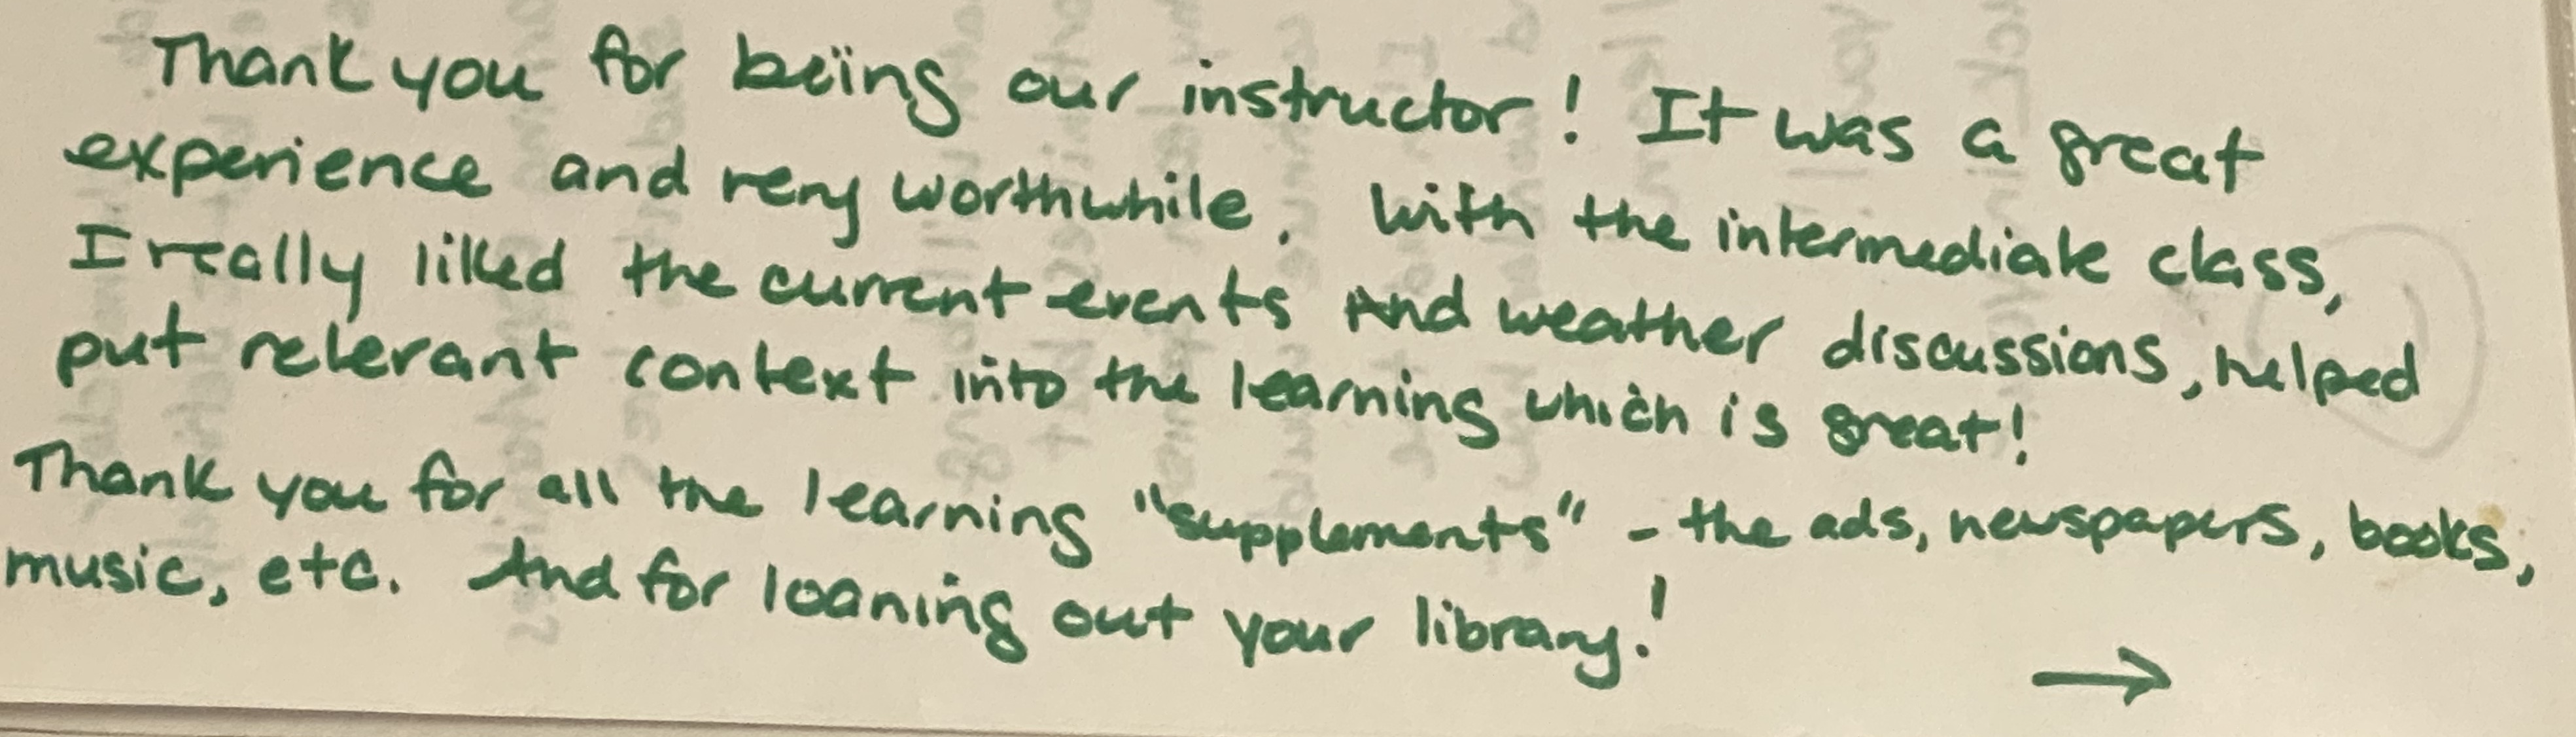 Thank you for being our instructor! It was a great
experience and very worthwhile. With the intermediate class,
I really liked the current events And weather discussions, helped
put relevant context into the learning which is great!
Thank you for all the learning "supplements" - the ads, newspapers, books,
music, etc. And for loaning out your library!
→